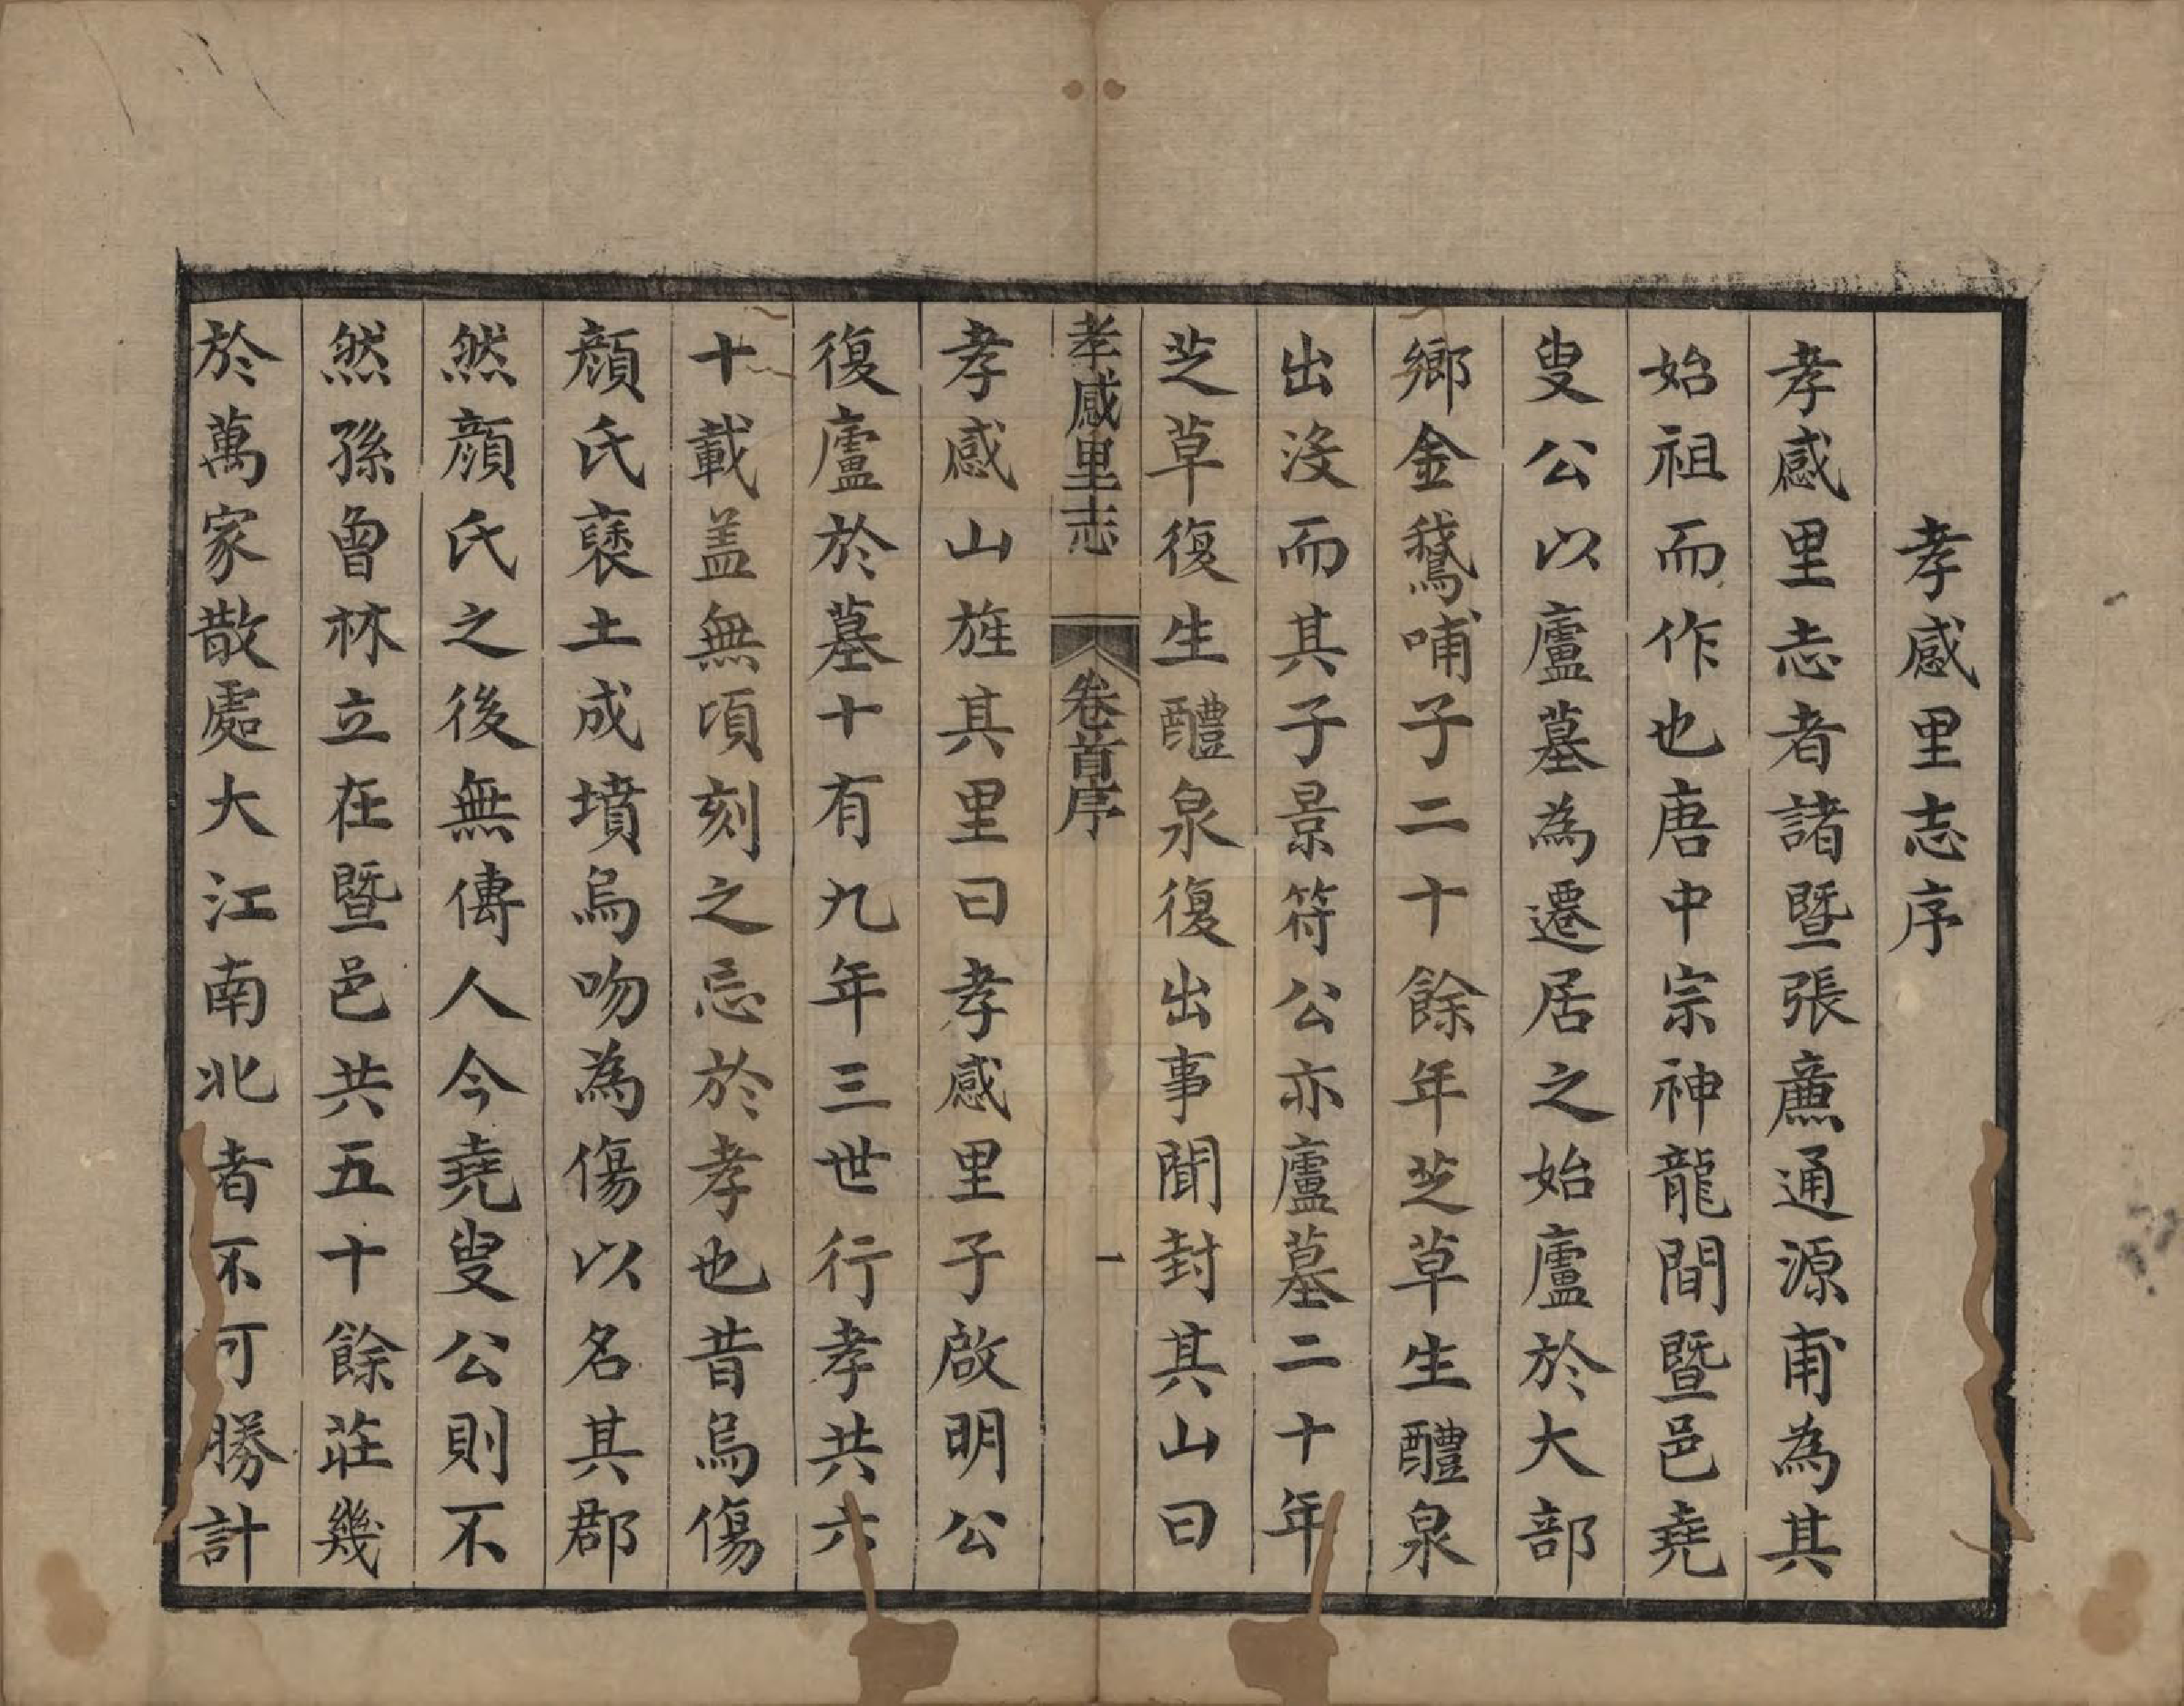 孝感里志序
孝感里志者諸暨張薰通源甫為其
始祖而作也唐中宗神龍間暨邑堯
叟公以廬墓為遷居之始廬於大部
鄉金鵞哺子二十餘年芝草生醴泉
出沒而其子景符公亦廬墓二十年
芝草復生醴泉復出事聞封其山曰
孝感里志 卷首序 一
孝感山旌其里曰孝感里子啟明公
復廬於墓十有九年三世行孝共六
十載盖無頃刻之忘於孝也昔烏傷
顏氏褒土成墳烏吻為傷以名其郡
然顏氏之後無傳人今堯叟公則不
然孫曾林立在暨邑共五十餘莊幾
於萬家散處大江南北者不可勝計